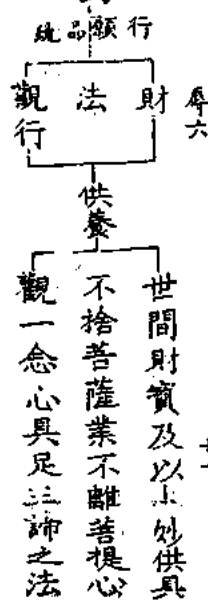 行願品疏
財
法
觀行
供養
世間財寶及以上妙供具
不捨菩薩業不離菩提心
觀一念心具足三諦之法